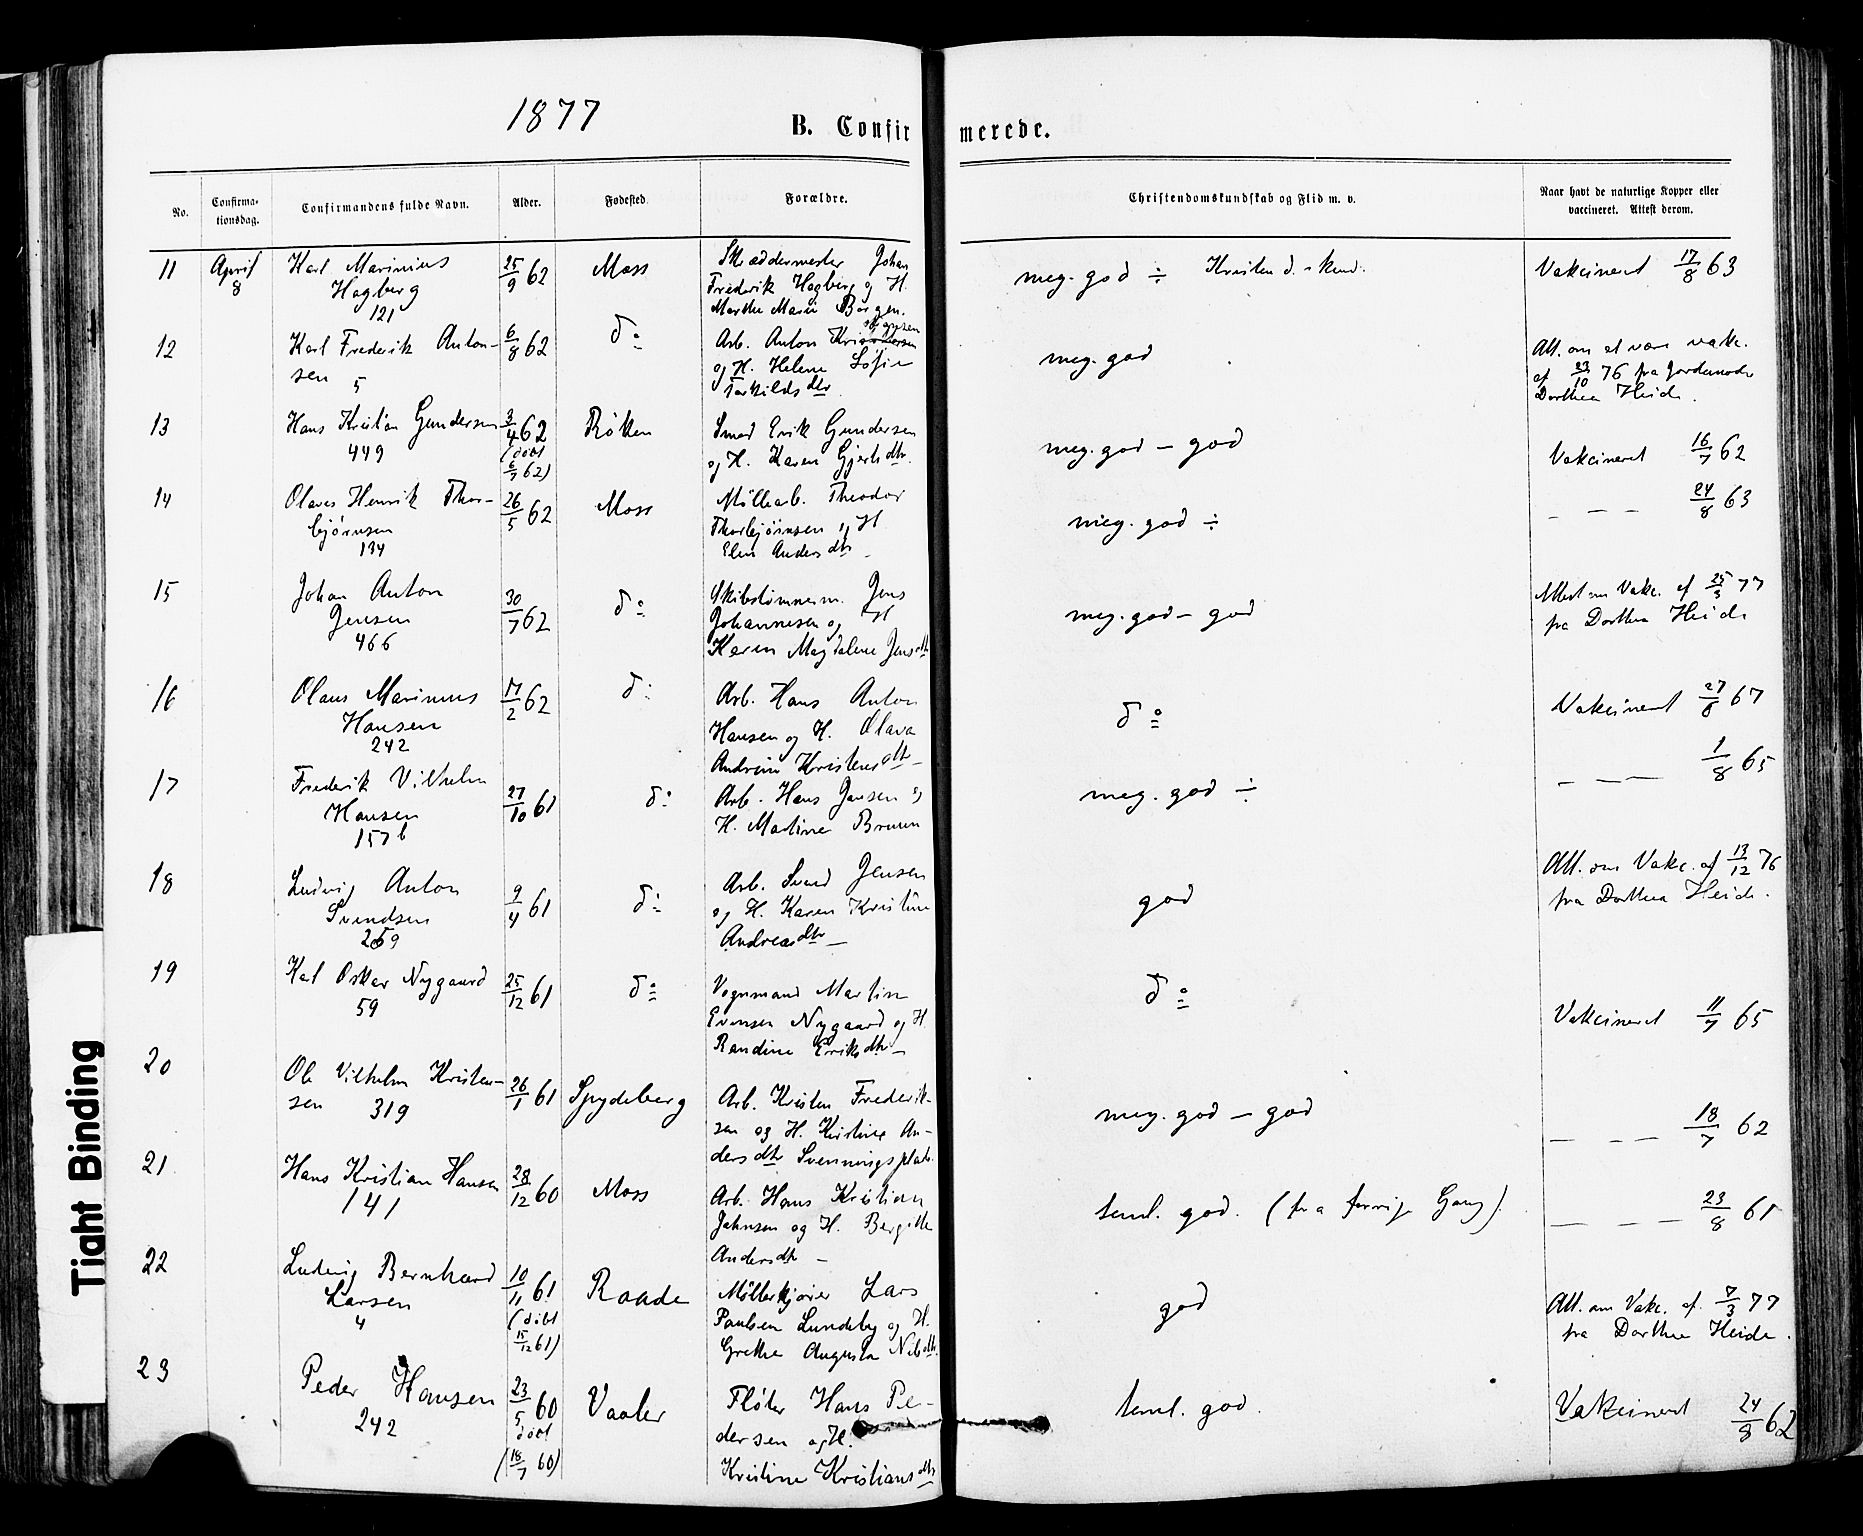 1877
B. Confirmerede.
No.
Confirma-
tionsdag.
Confirmandens fulde Navn.
Alder.
Fødested
Forældre.
Christendomskundskab og Flid m. v.
Naar havt de naturlige Kopper eller
vaccineret. Attest derom.
11 April 8
Karl Marinius
Hagberg
121
25/9 62
Moss
Skræddermester Johan
Frederik Hagberg og H.
Marthe Marie Borgen.
meg. god ÷ Kristend.-kund.
Vakcineret 17/8 63
12
Karl Frederik Anton-
sen 5
6/8 62
do
Arb. Anton
og H. Helene Sofie
Torkildsdtr
meg. god
Att. om at være vakc.
af 23/10 76 fra Jordemoder
Dorthea Heide.
13
Hans Kristian Gundersen
449
3/4 62
(døbt
6/7 62)
Røken
Smed Erik Gundersen
og H. Karen Gjertsdtr.
meg. god – god
Vakcineret 16/7 62
14
Olaves Henrik Thor-
bjørnsen
134
26/5 62
Moss
Møllearb. Theodor
Thorbjørnsen og H
Elen Andersdtr –
meg. god ÷
– – – 24/8 63
15
Johan Anton
Jensen
466
30/7 62
do
Skibstømmerm. Jens
Johannesen og H
Karen Magdalene Jensdtr
meg. god – god
Attest om Vakc. af 25/3 77
fra Dorthea Heide
16
Olaus Marinius
Hansen
242
17/2 62
do
Arb. Hans Anton
Hansen og H. Olava
Andrine Kristensdtr –
do
Vakcineret 27/8 67
17
Frederik Vilhelm
Hansen
157 b
27/10 61
do
Arb. Hans Jensen og
H. Martine Bruun
meg. god ÷
– – – 1/8 65
18
Ludvig Anton
Svendsen
259
9/4 61
do
Arb. Svend Jensen
og H. Karen Kristine
Andreasdtr –
god
Att. om Vakc. af 13/12 76
fra Dorthea Heide.
19
Karl Oskar Nygaard
59
25/12 61
do
Vognmand Martin
Evensen Nygaard og H.
Randine Eriksdtr –
do
Vakcineret 11/7 65
20
Ole Vilhelm Kristen-
sen 319
26/1 61
Spydeberg
Arb. Kristen Frederik-
sen og H. Kristine An-
dersdtr Svenningsplads.
meg. god – god
– – – 18/7 62
21
Hans Kristian Hansen
141
28/12 60
Moss
Arb. Hans Kristian
Johnsen og H. Bergitte
Andersdtr –
teml. god. (fra forrige Gang).
– – – 23/8 61
22
Ludvig Bernhard
Larsen
4
10/11 61
(døbt
15/12 61)
Raade
Møllerkjører Lars
Paulsen Lundeby og H.
Grethe Augusta Nilsdtr.
god
Att. om Vakc. af. 7/3 77
fra Dorthea Heide.
23
Peder Hansen
242
23/5 60
døbt
(18/7 60)
Vaaler
Fløter Hans Pe-
dersen og H.
Kristine Kristiansdtr
teml. god.
Vakcineret 24/8 62
Tight Binding